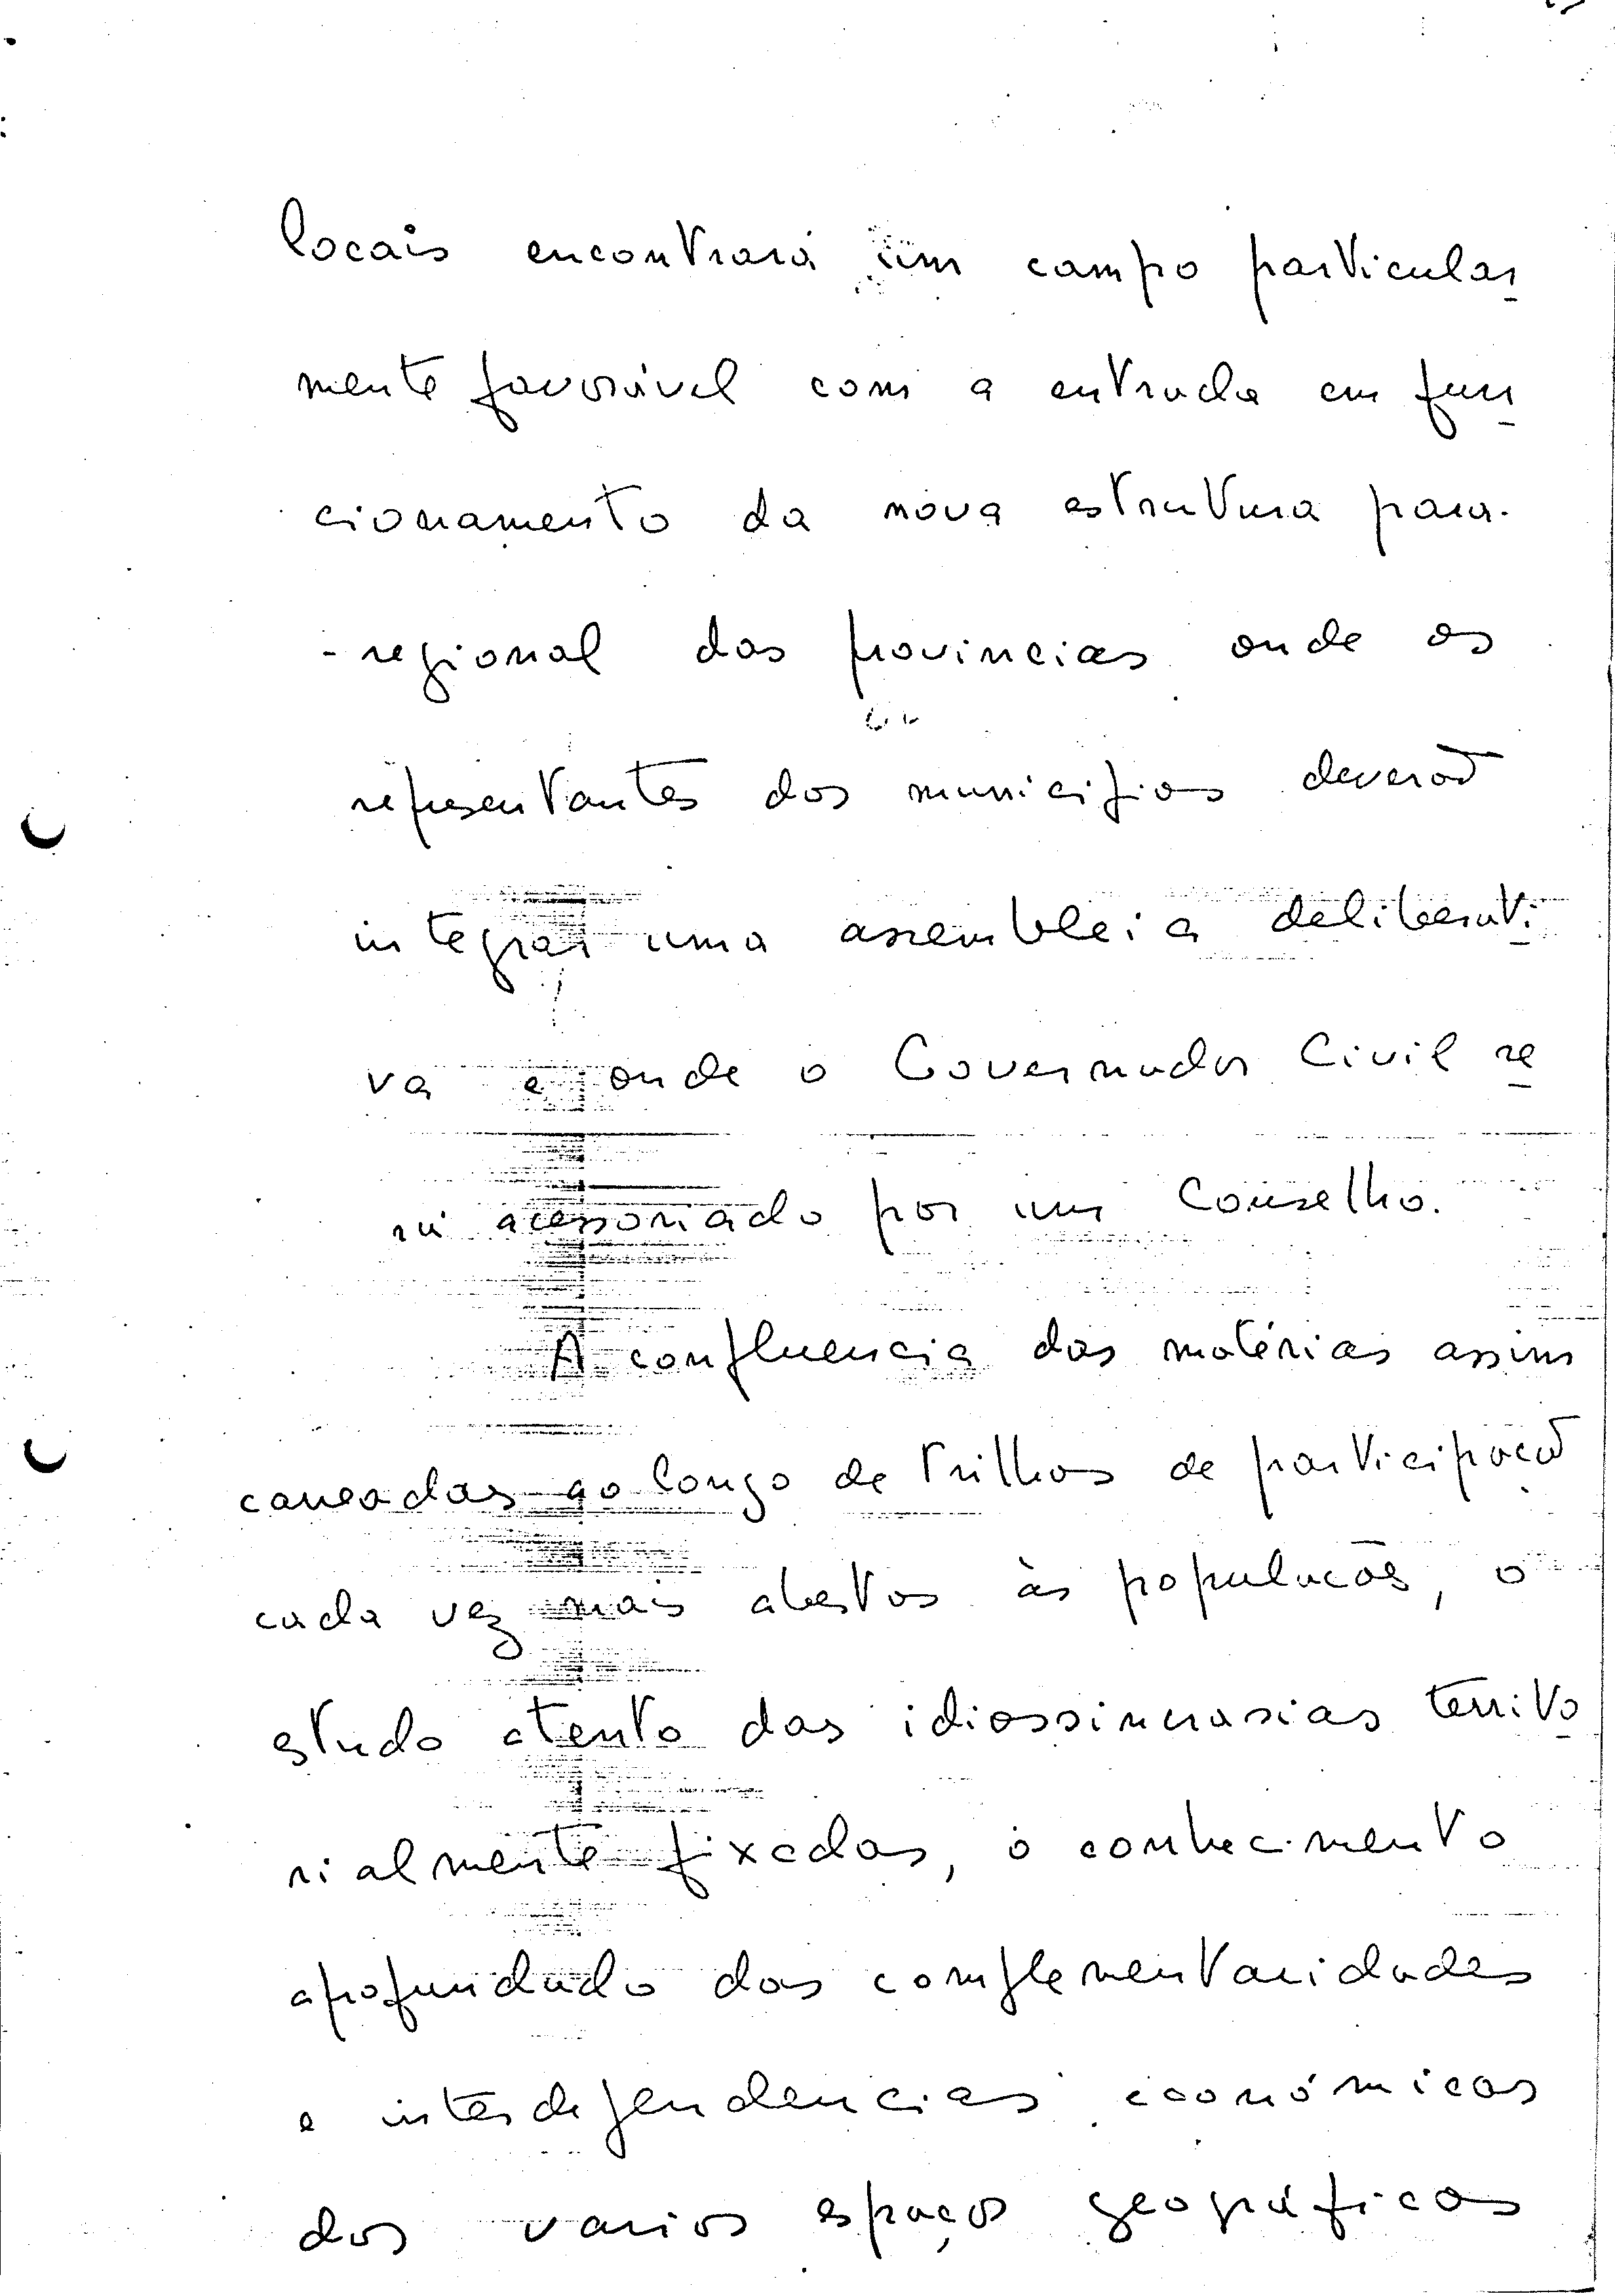 locais encontrará um campo particular
mente favorável com a entrada em fun
cionamento da nova estrutura para-
-regional das províncias onde os
representantes dos municípios deverão
integrar uma assembleia deliberati
va e onde o Governador Civil se
rá acessoriado por um Conselho.
A confluencia das matérias assim
caneadas ao longo de trilhos de participação
cada vez mais abertos às populacões, o
estudo atento das idiossincrasias territo
rialmente fixadas, o conhecimento
aprofundado das complementaridades
e interdependencias económicas
dos varios espaços geográficos